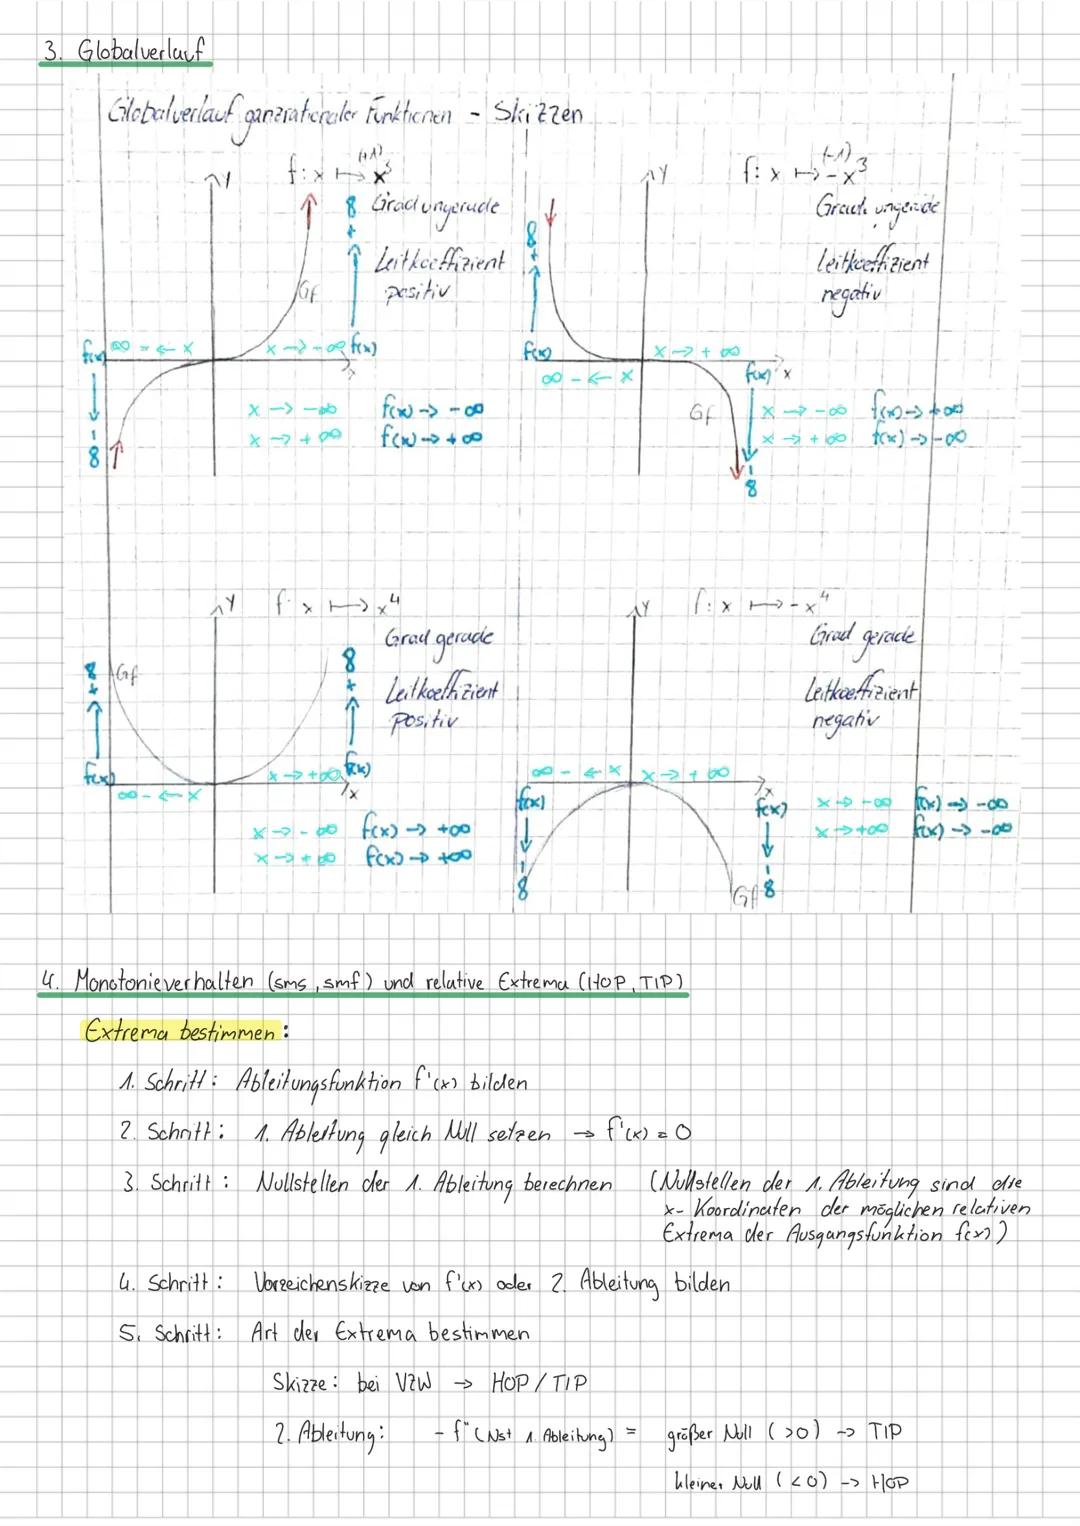 3. Globalverlauf
Globalverlauf ganzrationaler Funktionen - Skizzen
y
f: x ↦ (+1) x³
Grad ungerade
Leitkoeffizient
positiv
Gf
+ ∞
f(x)
∞ - ← x
x → - ∞
f(x)
x
- ∞
x → -∞ f(x) → -∞
x → +∞ f(x) → +∞
y
f: x ↦ (-1) -x³
Grad ungerade
Leitkoeffizient
negativ
+ ∞
f(x)
x → + ∞
∞ - ← x
f(x)
x
Gf
x → -∞ f(x) → +∞
x → +∞ f(x) → -∞
- ∞
y
f: x ↦ x⁴
Grad gerade
Leitkoeffizient
positiv
Gf
+ ∞
+ ∞
f(x)
x → +∞
f(x)
∞ - ← x
x
x → -∞ f(x) → +∞
x → +∞ f(x) → +∞
y
f: x ↦ -x⁴
Grad gerade
Leitkoeffizient
negativ
∞ - ← x
x → + ∞
x
f(x)
f(x)
x → -∞ f(x) → -∞
x → +∞ f(x) → -∞
- ∞
Gf
- ∞
4. Monotonieverhalten (sms, smf) und relative Extrema (HOP, TIP)
Extrema bestimmen:
1. Schritt: Ableitungsfunktion f'(x) bilden
2. Schritt: 1. Ableitung gleich Null setzen → f'(x) = 0
3. Schritt: Nullstellen der 1. Ableitung berechnen (Nullstellen der 1. Ableitung sind die
x-Koordinaten der möglichen relativen
Extrema der Ausgangsfunktion f(x))
4. Schritt: Vorzeichenskizze von f'(x) oder 2. Ableitung bilden
5. Schritt: Art der Extrema bestimmen
Skizze: bei VZW → HOP / TIP
2. Ableitung: - f" (Nst 1. Ableitung) = größer Null (>0) → TIP
kleiner Null (<0) → HOP